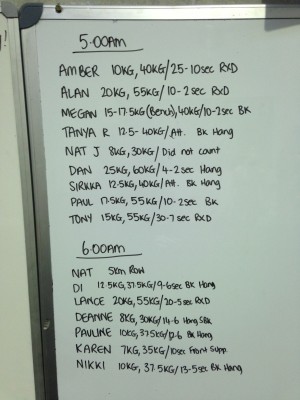 5.00AM
AMBER 10KG, 40KG/25-10sec RXD
ALAN 20KG, 55KG/10-2sec RXD
MEGAN 15-17.5KG(Bench), 40KG/10-2sec BK
TANYA R. 12.5-40KG/Att. Bk Hang
NAT J 8KG, 30KG/Did not count
DAN 25KG, 60KG/4-2sec Hang
SIRKKA 12.5KG, 40KG/Att. Bk Hang
PAUL 17.5KG, 55KG/10-2sec BK
TONY 15KG, 55KG/30-7sec RXD
6.00AM
NAT 5km Row
DI 12.5KG, 37.5KG/9-6sec BK Hang
LANCE 20KG, 55KG/20-5sec RXD
DEANNE 8KG, 30KG/14-6 Hang SBK
PAULINE 10KG, 37.5KG/12-6 BK Hang
KAREN 7KG, 35KG/10sec Front Supp.
NIKKI 10KG, 37.5KG/13-5sec BK Hang